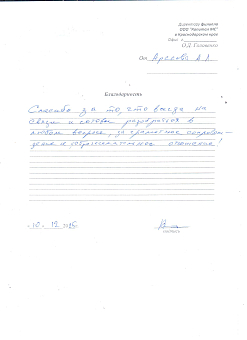 Директору филиала
в Краснодарском крае
О.Д. Головенко
От Арсенов А А
Благодарность
Спасибо за то, что всегда на
связи и готовы разобраться в
любом вопросе, за грамотное сопровож-
дение и доброжелательное отношение!